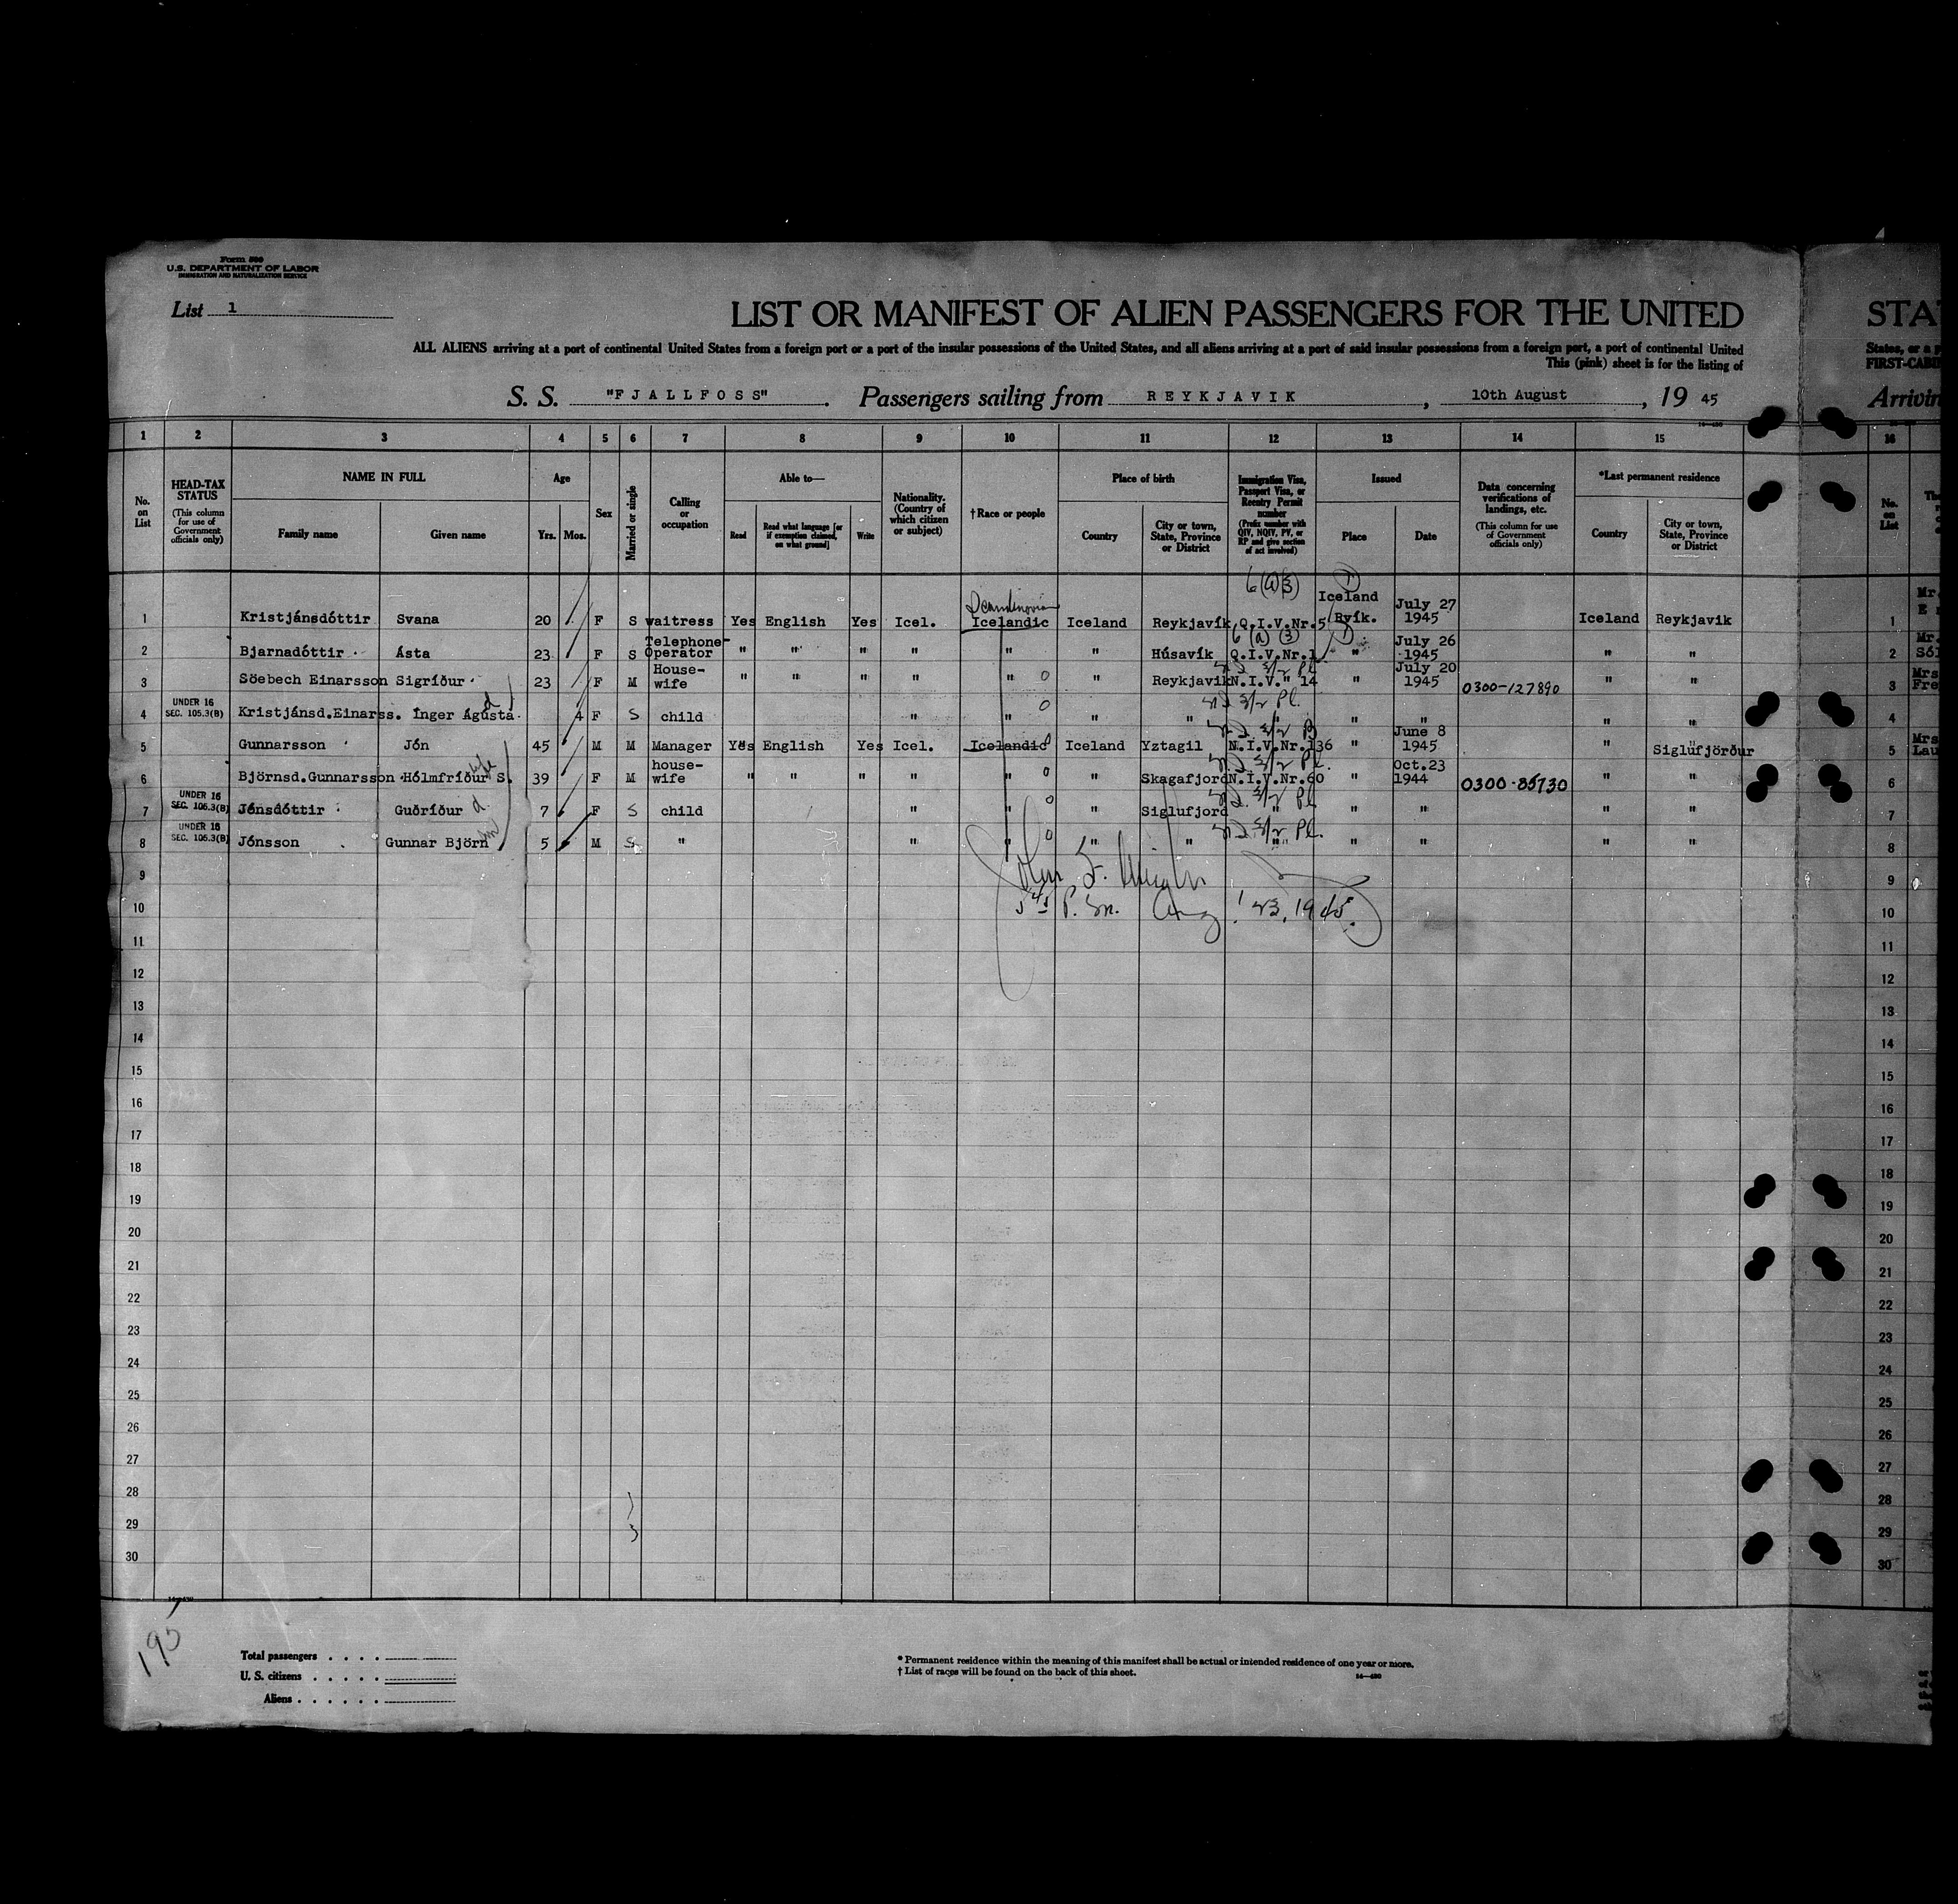 Form 500
U.S. DEPARTMENT OF LABOR
IMMIGRATION AND NATURALIZATION SERVICE
List 1
LIST OR MANIFEST OF ALIEN PASSENGERS FOR THE UNITED STAT
ALL ALIENS arriving at a port of continental United States from a foreign port or a port of the insular possessions of the United States, and all aliens arriving at a port of said insular possessions from a foreign port, a port of continental United States, or a p
This (pink) sheet is for the listing of FIRST-CABI
S. S. "FJALLFOSS". Passengers sailing from REYKJAVIK, 10th August, 1945 Arrivin
1 2 3 4 5 6 7 8 9 10 11 12 13 14 15 16
No. on List
HEAD-TAX STATUS
(This column for use of Government officials only)
NAME IN FULL
Family name Given name
Age
Yrs. Mos.
Sex
Married or single
Calling or occupation
Able to—
Read
Read what language [or if exemption claimed, on what ground]
Write
Nationality. (Country of which citizen or subject)
†Race or people
Place of birth
Country
City or town, State, Province or District
Immigration Visa, Passport Visa, or Reentry Permit number
(Prefix number with QIV, NQIV, PV, or RP and give section of act involved)
Issued
Place Date
Data concerning verifications of landings, etc.
(This column for use of Government officials only)
*Last permanent residence
Country
City or town, State, Province or District
No. on List
6(a)(3)
1 Kristjánsdóttir Svana 20 F S waitress Yes English Yes Icel. Scandinavian Icelandic Iceland Reykjavík Q.I.V.Nr.5 Iceland Rvík. July 27 1945 Iceland Reykjavik 1 Mr.
6(a)(3)
2 Bjarnadóttir Ásta 23 F S Telephone-Operator " " " " " " Húsavík Q.I.V.Nr.1 " July 26 1945 " " 2 Mr. Sól
3 Söebech Einarsson Sigríður 23 F M House-wife " " " " " 0 " Reykjavik N.I.V." 14 " July 20 1945 0300-127890 " " 3 Mrs Fre
4 UNDER 16 SEC. 105.3(B) Kristjánsd.Einarss. Inger Ágústa d 4 F S child " " 0 " " " " " " " 4
5 Gunnarsson Jón 45 M M Manager Yes English Yes Icel. Icelandic Iceland Yztagil N.I.V.Nr.136 " June 8 1945 " Siglufjörður 5 Mrs Lau
6 Björnsd.Gunnarsson Hólmfríður S. wife 39 F M house-wife " " " " " 0 " Skagafjord N.I.V.Nr.60 " Oct.23 1944 0300-85730 " " 6
7 UNDER 16 SEC. 105.3(B) Jónsdóttir Guðríður d 7 F S child " " 0 " Siglufjord " " " " " 7
8 UNDER 16 SEC. 105.3(B) Jónsson Gunnar Björn 5 M S " " " 0 " " " " " " " 8
9 9
10 Aug. 23, 1945. 10
11 11
12 12
13 13
14 14
15 15
16 16
17 17
18 18
19 19
20 20
21 21
22 22
23 23
24 24
25 25
26 26
27 27
28 28
29 29
30 30
195
Total passengers . . . .
U. S. citizens . . . . .
Aliens . . . . . .
* Permanent residence within the meaning of this manifest shall be actual or intended residence of one year or more.
† List of races will be found on the back of this sheet.